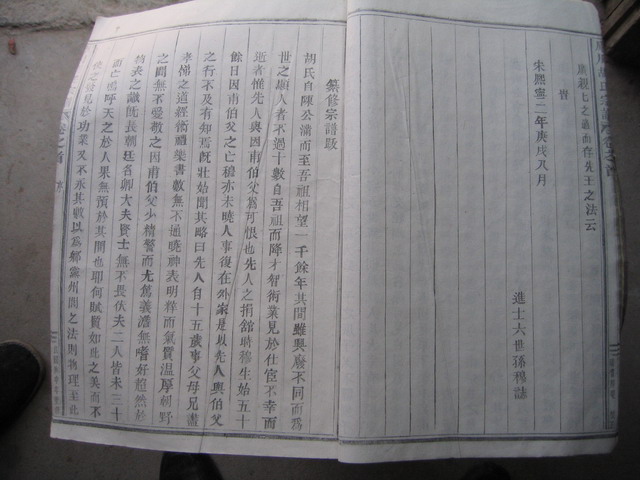 廣親七之義而存先王之法云
宋熙寧二年庚戌八月
進士六世孫穆誌
纂修宗譜跋
胡氏自陳公滿而至吾祖相望一千餘年其間雖興廢不同而為
世之顯人者不過十數自吾祖而降才智術業見於仕宦不幸而
逝者惟先人與因甫伯父為可恨也先人之捐舘時穆生始五十
餘日因甫伯父之亡穆亦未曉人事復在外家是以先人與伯父
之行不及有知焉旣壯始聞其略曰先人自十五歲事父母兄盡
孝悌之道經術禮樂書數無不通曉神表明粹而氣質温厚朝野
之間無不愛敬之因甫伯父少精警而尤篤義澹無嗜好超然於
物表之敵旣長朝廷名卿大夫賢士無不長伏夫二人皆未三十
而亡嗚呼天之於人果無預於其間也耶何賦質如此之美而不
使之發見於功業又不永其數以為鄉黨州閭之法則物理至此